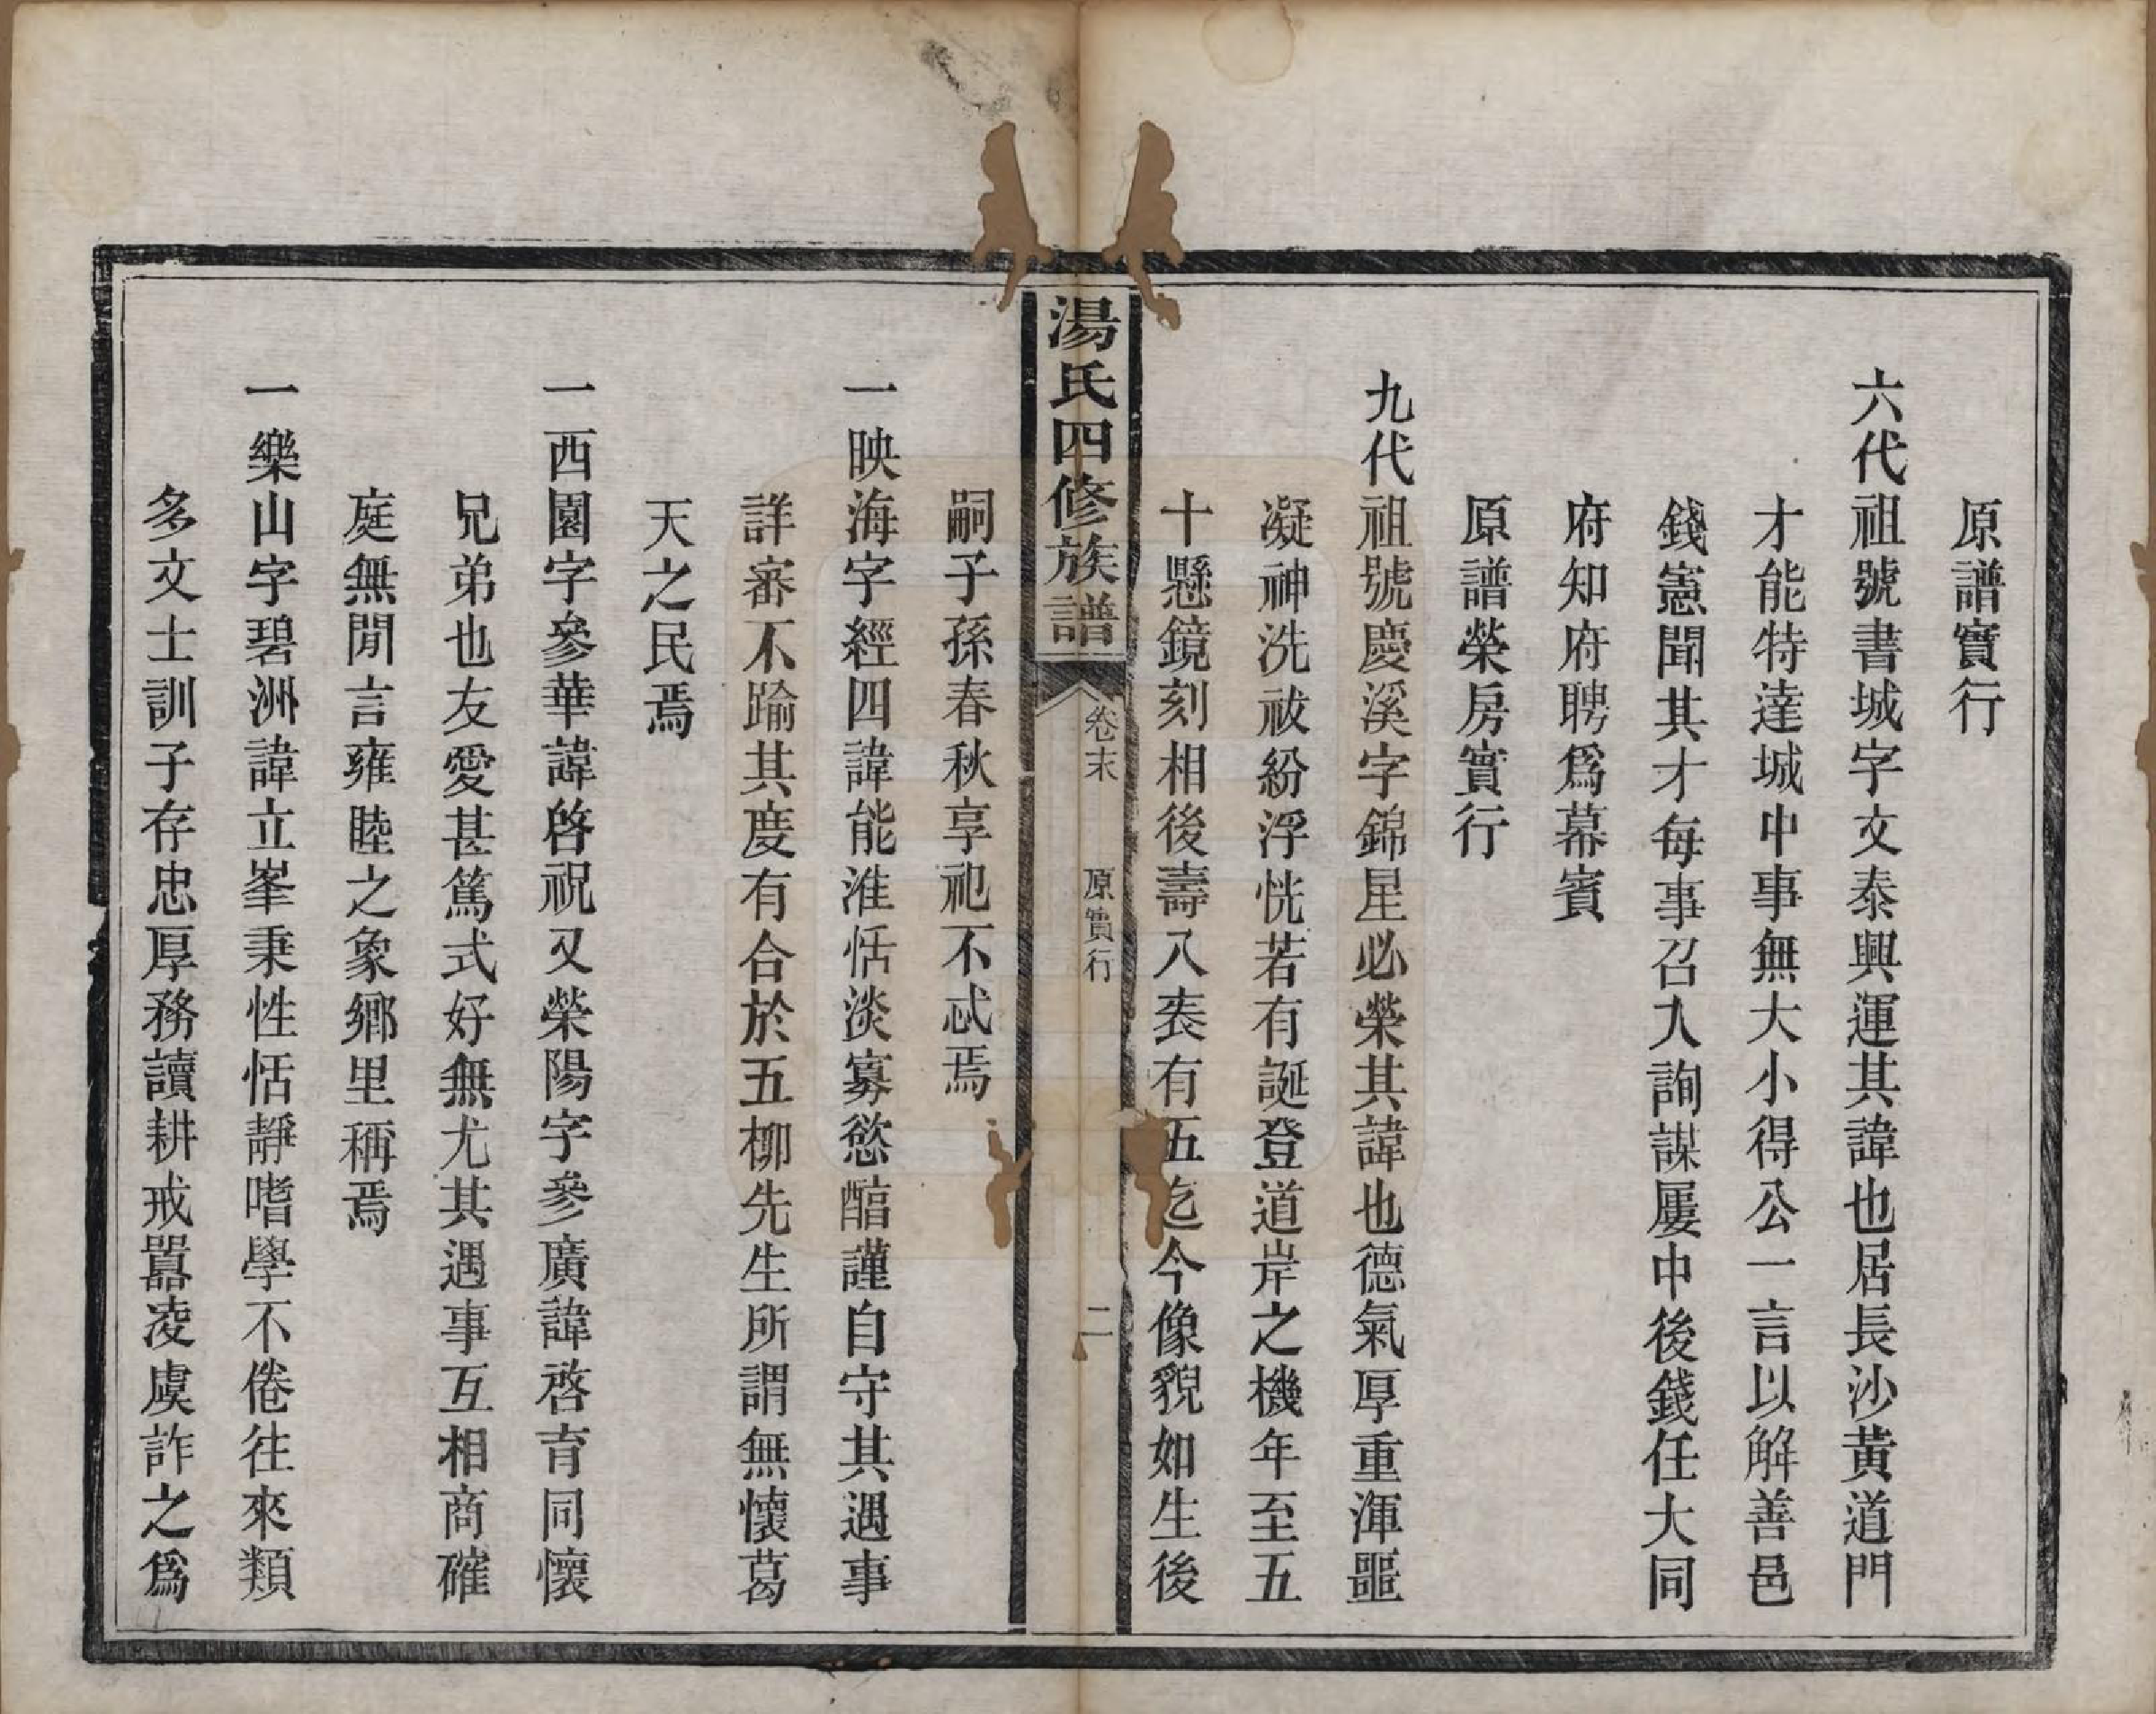 原譜實行
六代祖號書城字文泰興運其諱也居長沙黃道門
才能特達城中事無大小得公一言以解善邑
錢憲聞其才每事召入詢謀屢中後錢任大同
府知府聘爲幕賓
原譜榮房實行
九代祖號慶溪字錦星必榮其諱也德氣厚重渾噩
凝神洗祓紛浮恍若有誕登道岸之機年至五
十懸鏡刻相後壽八袠有五迄今像貌如生後
湯氏四修族譜
卷末
原實行
二
嗣子孫春秋享祀不忒焉
一映海字經四諱能淮恬淡寡慾醕謹自守其遇事
詳審不踰其度有合於五柳先生所謂無懷葛
天之民焉
一西園字參華諱啓祝又榮陽字參廣諱啓育同懷
兄弟也友愛甚篤式好無尤其遇事互相商確
庭無閒言雍睦之象鄉里稱焉
一樂山字碧洲諱立峯秉性恬靜嗜學不倦往來類
多文士訓子存忠厚務讀耕戒囂凌虞詐之爲